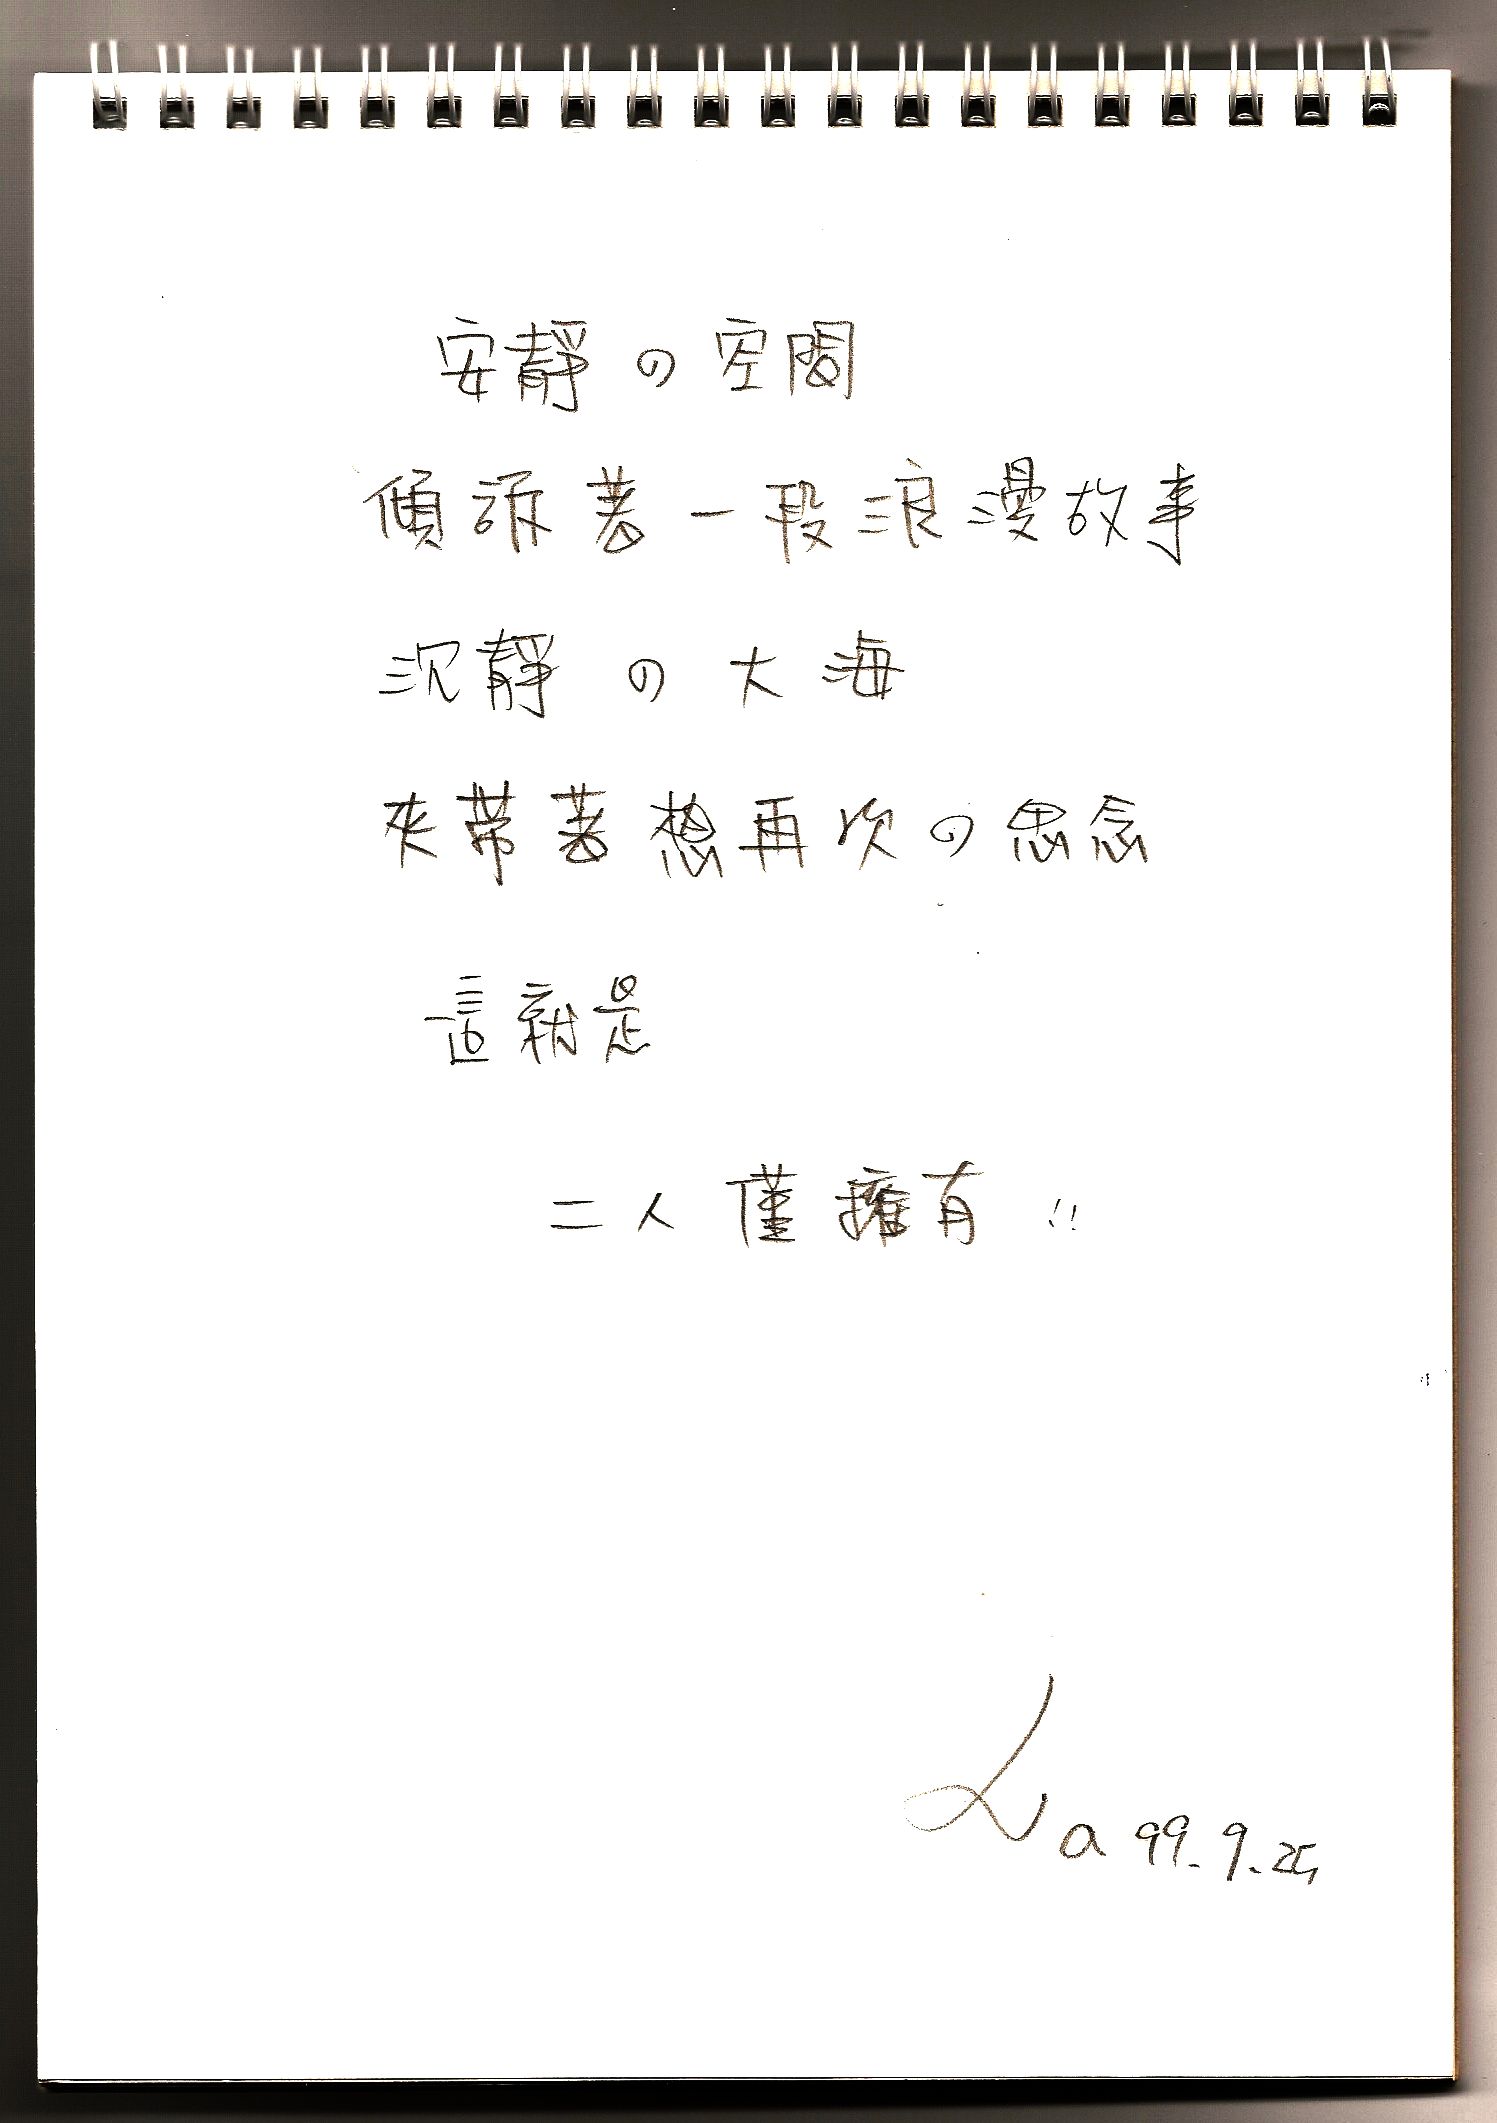 安靜の空間
傾訴著一段浪漫故事
沉靜の大海
夾帶著想再次の思念
這就是
二人僅擁有!!
La 99.9.25